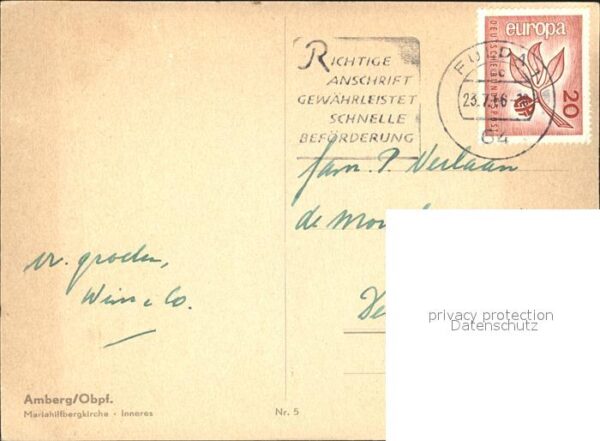 RICHTIGE
ANSCHRIFT
GEWÄHRLEISTET
SCHNELLE
BEFÖRDERUNG
FULDA 1
c
23.7.66
64
europa
DEUTSCHE BUNDESPOST
20
fam. P. Verlaan
de
vr. groeten,
Wim & Co.
privacy protection
Datenschutz
Amberg/Obpf.
Mariahilfbergkirche - Inneres
Nr. 5